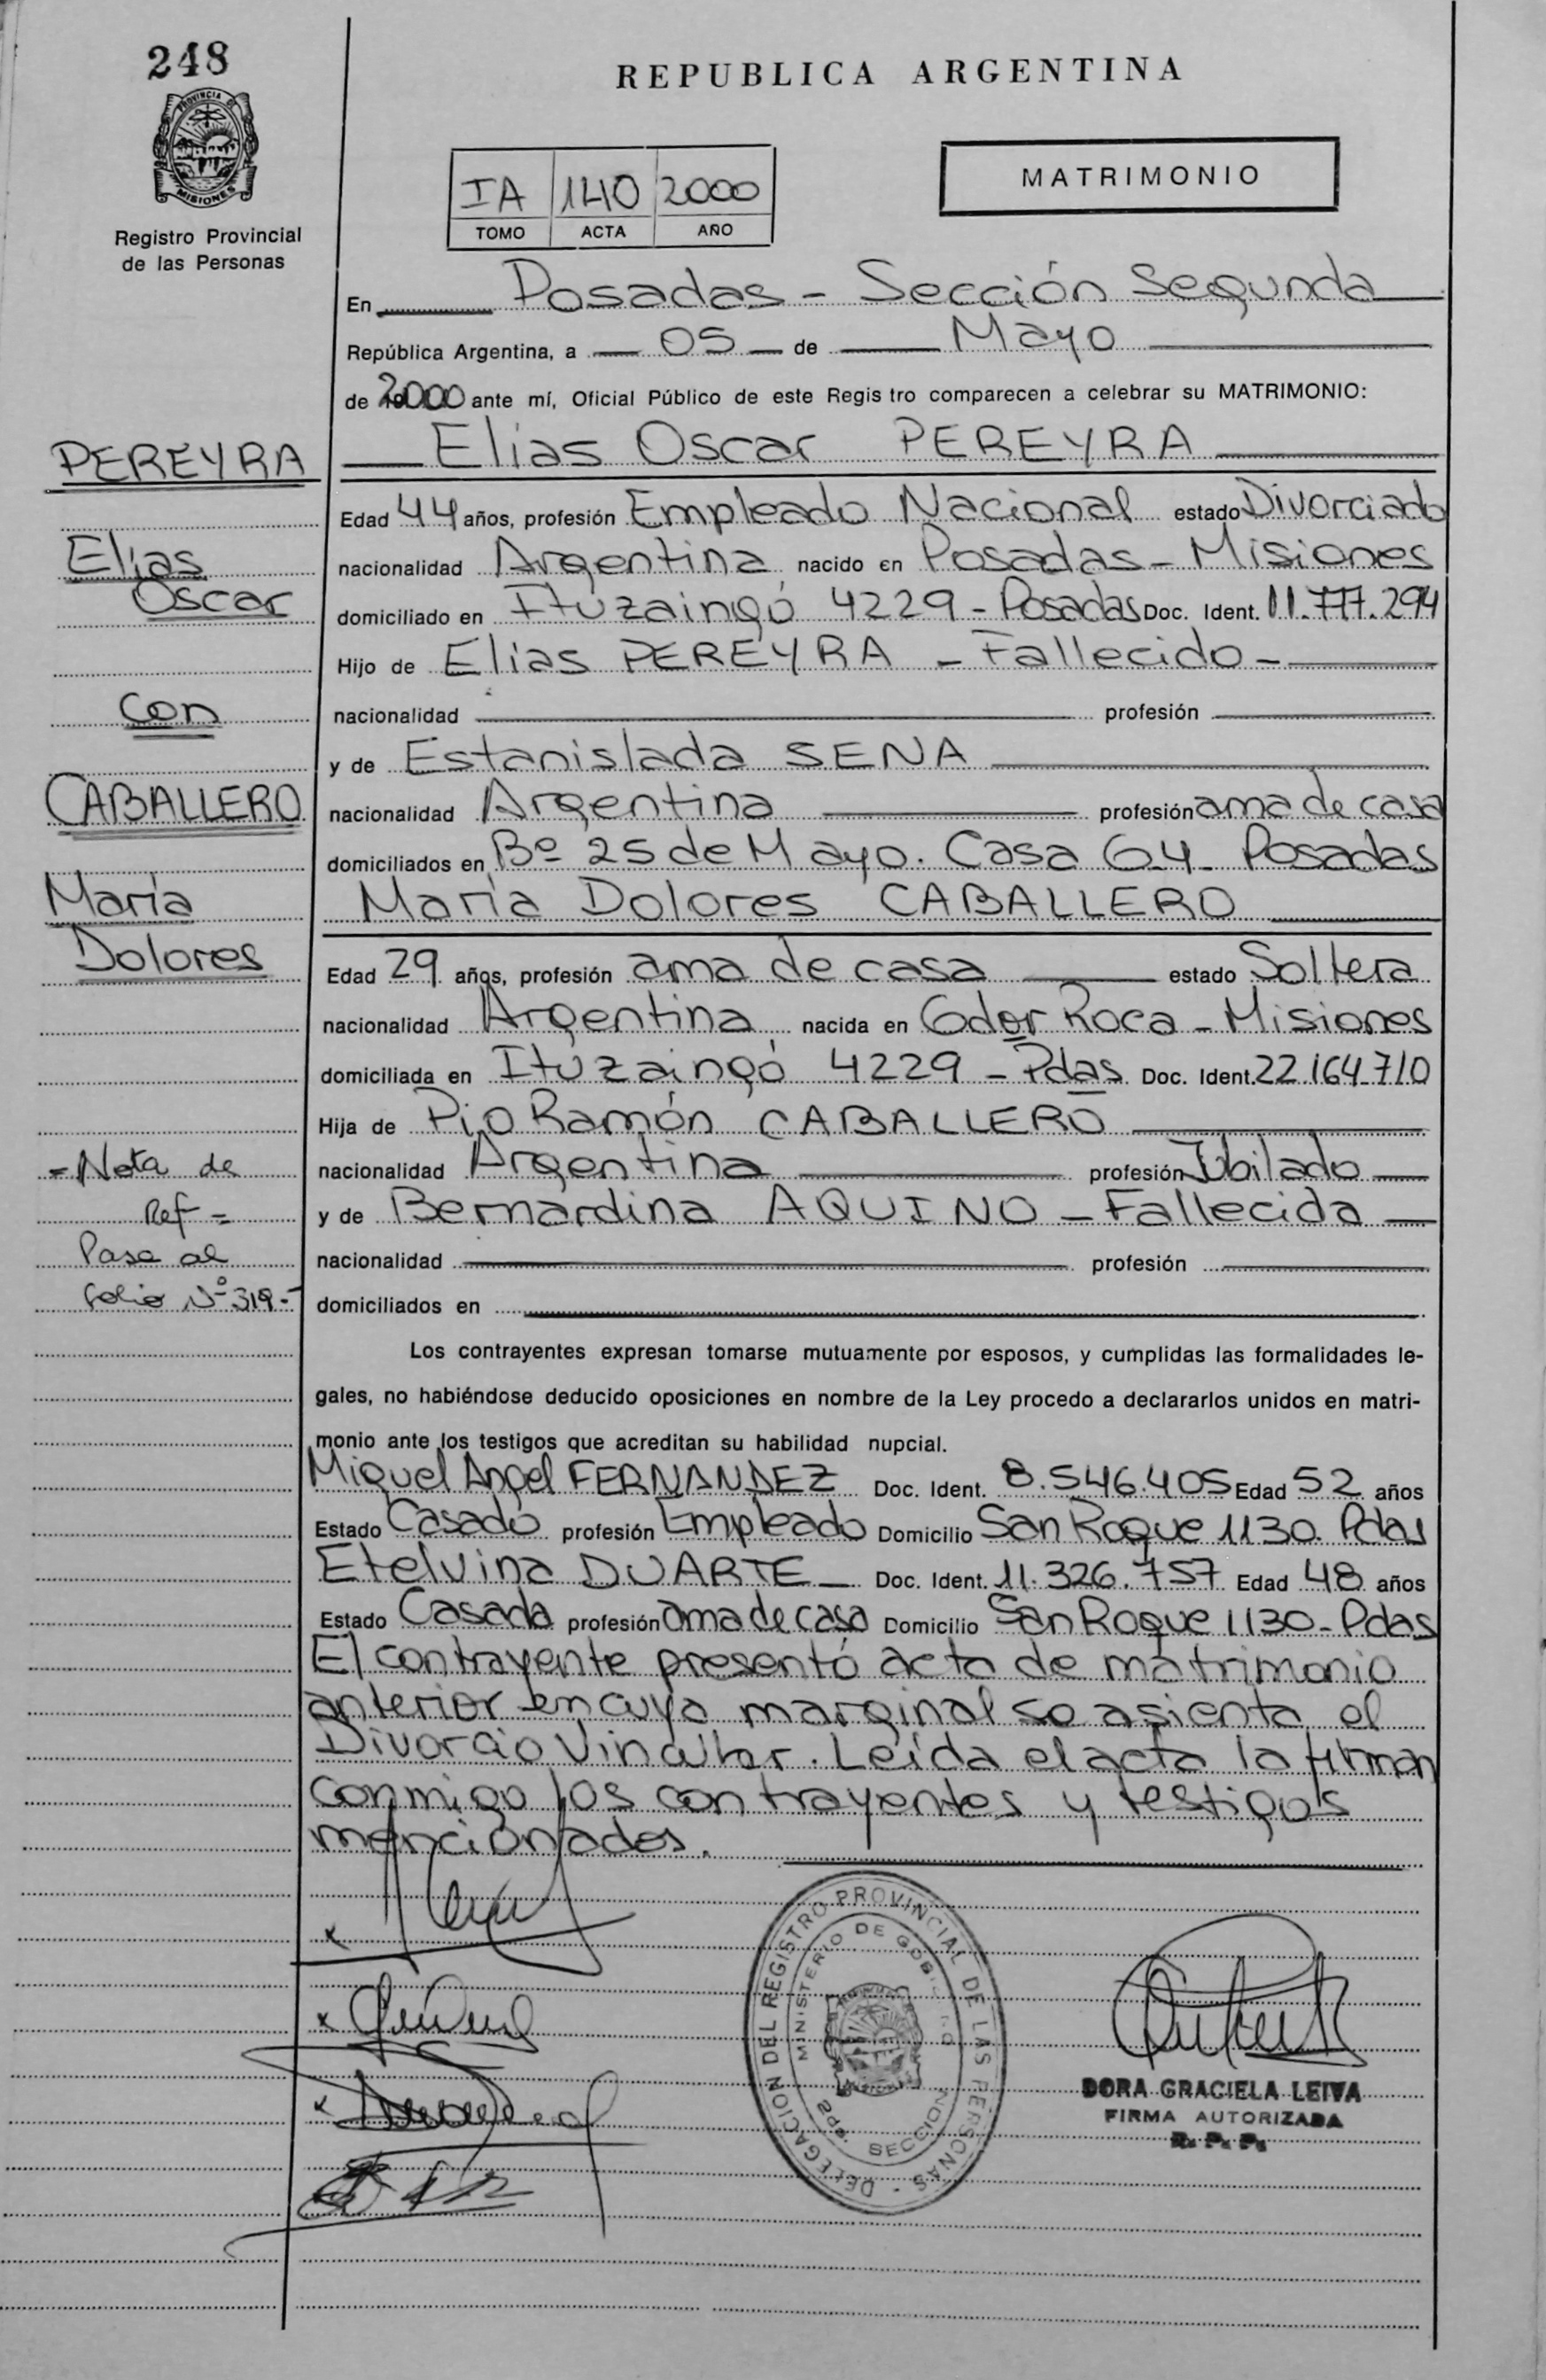 248
REPUBLICA ARGENTINA
PROVINCIA DE
MISIONES
Registro Provincial
de las Personas
IA 140 2000
TOMO ACTA AÑO
MATRIMONIO
En Posadas - Sección Segunda
República Argentina, a 05 de Mayo
de 2000 ante mí, Oficial Público de este Regis tro comparecen a celebrar su MATRIMONIO:
PEREYRA
Elias Oscar
con
CABALLERO
María Dolores
Elias Oscar PEREYRA
Edad 44 años, profesión Empleado Nacional estado Divorciado
nacionalidad Argentina, nacido en Posadas - Misiones
domiciliado en Ituzaingó 4229 - Posadas Doc. Ident. 11.777.294
Hijo de Elias PEREYRA - Fallecido -
nacionalidad profesión
y de Estanislada SENA
nacionalidad Argentina profesión ama de casa
domiciliados en Bº 25 de Mayo. Casa 64 - Posadas
María Dolores CABALLERO
Edad 29 años, profesión ama de casa estado Soltera
nacionalidad Argentina, nacida en Gdor Roca - Misiones
domiciliada en Ituzaingó 4229 - Pdas. Doc. Ident. 22.164.710
Hija de Pio Ramón CABALLERO
nacionalidad Argentina profesión Jubilado
y de Bernardina AQUINO - Fallecida
nacionalidad profesión
domiciliados en
= Nota de
Ref =
Pasa al
folio Nº 319.-
Los contrayentes expresan tomarse mutuamente por esposos, y cumplidas las formalidades le-
gales, no habiéndose deducido oposiciones en nombre de la Ley procedo a declararlos unidos en matri-
monio ante los testigos que acreditan su habilidad nupcial.
Miguel Angel FERNANDEZ Doc. Ident. 8.546.405 Edad 52 años
Estado Casado profesión Empleado Domicilio San Roque 1130. Pdas
Etelvina DUARTE - Doc. Ident. 11.326.757 Edad 48 años
Estado Casada profesión ama de casa Domicilio San Roque 1130 - Pdas
El contrayente presentó acta de matrimonio
anterior en cuya marginal se asienta el
Divorcio Vincular. Leída el acta la firman
conmigo los contrayentes y testigos
mencionados.
DELEGACION DEL REGISTRO PROVINCIAL DE LAS PERSONAS
MINISTERIO DE
SECCION
DORA GRACIELA LEIVA
FIRMA AUTORIZADA
R. P. P.